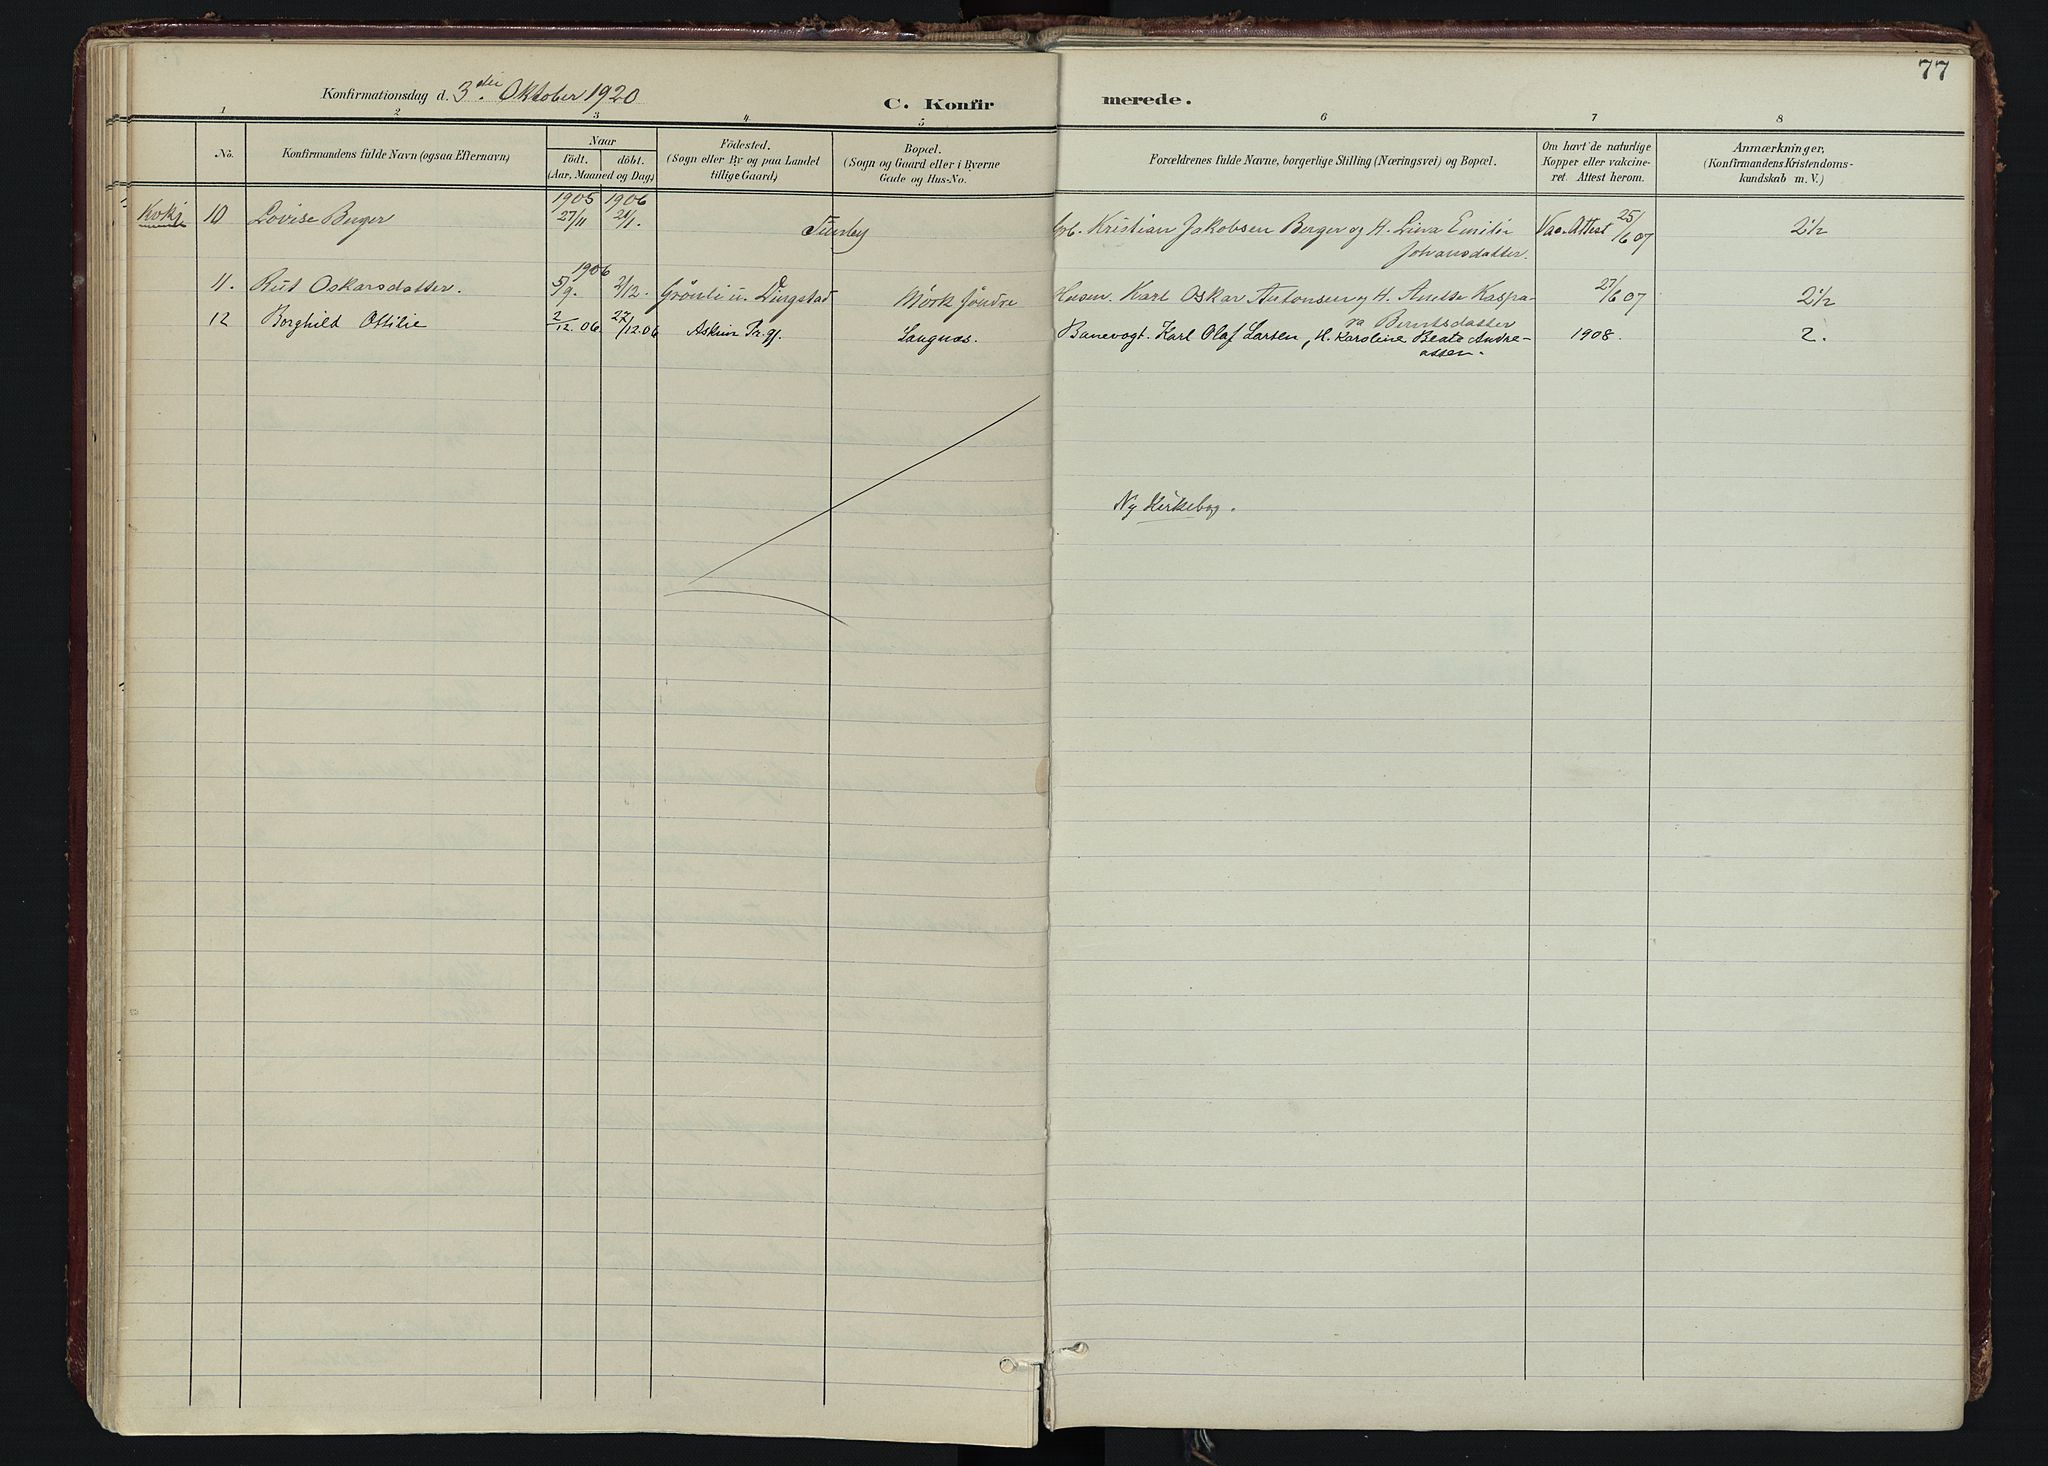 77
Konfirmationsdag d. 3die Oktober 1920
C. Konfirmerede.
1 2 3 4 5 6 7 8
No.
Konfirmandens fulde Navn (ogsaa Efternavn)
Naar
födt. döbt.
(Aar, Maaned og Dag)
Födested.
(Sogn eller By og paa Landet
tillige Gaard)
Bopæl.
(Sogn og Gaard eller i Byerne
Gade og Hus-No.
Forældrenes fulde Navne, borgerlige Stilling (Næringsvei) og Bopæl.
Om havt de naturlige
Kopper eller vakcine-
ret. Attest herom.
Anmærkninger,
(Konfirmandens Kristendoms-
kundskab m. V.)
1905 1906
10 Lovise Berger 27/11 21/1. Kristian Jakobsen Berger og H. Lina Emilie Vac. Attest 25/6 07 2½
Johansdatter.
1906
11. Rut Oskarsdatter. 5/9. 2/12. Grönli u. Dingstad Mörk söndre Husm. Karl Oskar Antonsen og H. Anette Kaspa- 27/6 07 2½
ra Berntsdatter
12 Borghild Ottilie 2/12. 06 27/12. 06 Askim Pr.gj. Langnæs. Banevogt. Karl Olaf Larsen, H. Karoline Beate Andre- 1908. 2.
assen.
Ny Kirkebog.